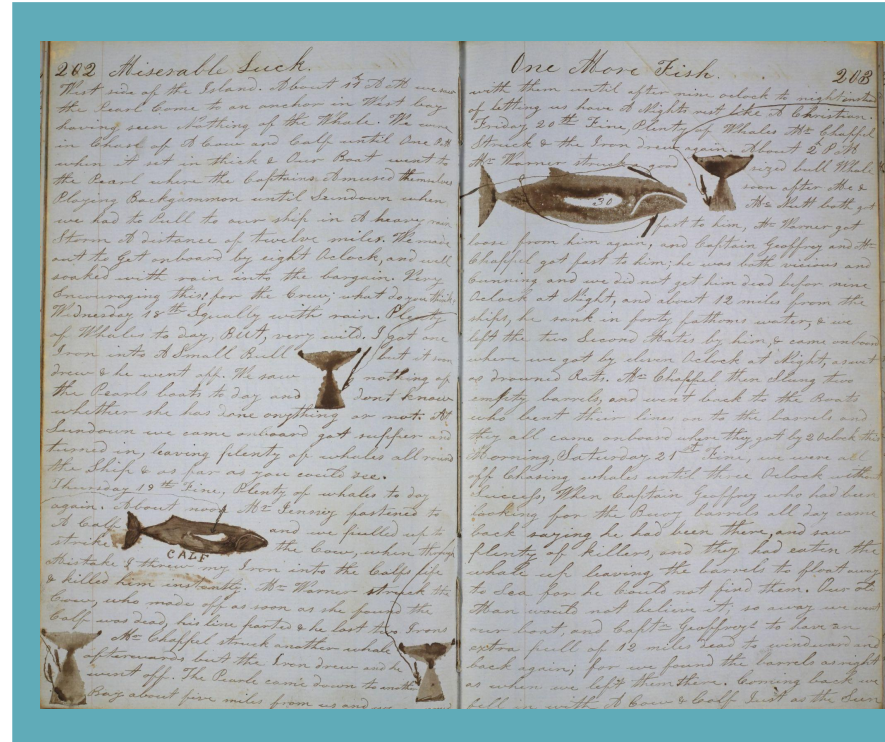 202 Miserable Luck.
West side of the Island. About 11 A.M. we saw
the Pearl Come to an anchor in West bay
having seen Nothing of the Whale. We were
in Chase of A Cow and Calf until One P.M
when it set in thick & Our Boat went to
the Pearl where the Captains Amused themselves
Playing Backgammon until Sundown when
we had to Pull to our ship in A heavy rain
Storm A distance of twelve miles. We made
out to get onboard by eight Oclock, and well
soaked with rain into the bargain. Very
Encouraging this! for the Crew; what do you think;
Wednesday 18th Squally with rain. Plenty
of Whales to day, But, very wild, I got one
Iron into A Small Bull but it soon
drew & he went off. We saw nothing of
the Pearls boats to day and dont know
whether she has done anything or not. At
Sundown we came onboard got supper and
turned in, leaving plenty of whales all round
the Ship & as far as you could see.
Thursday 19th Fine, Plenty of whales to day
again. About noon Mr Jenney fastened to
A Calf and we pulled up to
strike the Cow, when through
CALF
mistake I threw my Iron into the Calfs life
& killed him instantly. Mr Warner struck the
Cow, who made off as soon as she found the
Calf was dead, his line parted & he lost two Irons
Mr Chappel struck another whale
afterwards but the Iron drew and he
went off. The Pearle came down to another
Bay about five miles from us and
One More Fish. 203
with them until after nine oclock to night instead
of letting us have A Nights rest like A Christian.
Friday 20th Fine, Plenty of Whales Mr Chappel
Struck & the Iron drew again. About 2 P.M
Mr Warner struck a good sized bull Whale
soon after Me &
30
Mr Mutt both got
fast to him, Mr Warner got
loose from him again, and Captain Geoffrey and Mr
Chappel got fast to him; he was both vicious and
Cunning and we did not get him dead befor nine
Oclock at Night, and about 12 miles from the
ships, he sank in forty fathoms water, & we
left the two Second Mates by him, & came onboard
where we got by eleven Oclock at Night, as wet
as drowned Rats. Mr Chappel then Slung two
empty barrels, and went back to the Boats
who bent their lines on to the barrels and
they all came onboard where they got by 2 Oclock this
Morning, Saturday 21st Fine, we were all
off Chasing whales until three Oclock without
success, When Captain Geoffrey who had been
looking for the Buoy barrels all day came
back saying he had been there, and saw
plenty of killers, and they had eaten the
whale up leaving the barrels to float away
to Sea for he Could not find them. Our Old
Man could not believe it, so away we went
our boat, and Captn Geoffreys to have an
extra pull of 12 miles dead to windward and
back again; for we found the barrels as right
as when we left them there. Coming back we
fell in with A Cow & Calf Just as the Sun